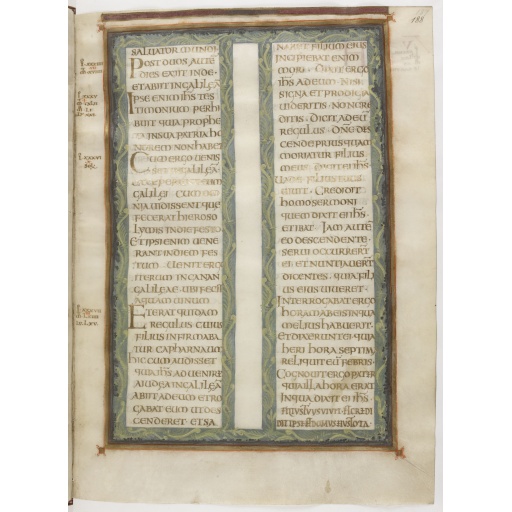 188
SALVATOR MUNDI
POST DUOS AUTE
DIES EXIIT INDE
ET ABIIT IN GALILEA
IPSE ENIM IHS TES
TIMONIUM PERHI
BUIT QUIA PROPHE
TA IN SUA PATRIA HO
NOREM NON HABET
CUM ERGO VENIS
GALILEI CUM OM
NIA VIDISSENT QUE
FECERAT HIEROSO
LYMIS IN DIE FESTO
ET IPSI ENIM VENE
RANT IN DIEM FES
TUM VENIT ERGO
ITERUM IN CANAN
GALILEAE UBI FECIT
AQUAM VINUM
ERAT QUIDAM
REGULUS CUIUS
FILIUS INFIRMABA
TUR CAPHARNAUM
HIC CUM AUDISSET
QUIA IHS ADVENIRET
A IUDEA IN GALILEA
ABIIT AD EUM ET RO
GABAT EUM UT DES
CENDERET ET SA
NARET FILIUM EIUS
INCIPIEBAT ENIM
MORI DIXIT ERGO
IHS AD EUM NISI
SIGNA ET PRODIGIA
VIDERITIS NON CRE
DITIS DICIT AD EU
REGULUS DNE DES
CENDE PRIUS QUAM
MORIATUR FILIUS
MEUS DICIT EI IHS
VADE FILIUS TUUS
VIVIT CREDIDIT
HOMO SERMONI
QUEM DIXIT EI IHS
ET IBAT IAM AUTE
EO DESCENDENTE
SERVI OCCURRERT
EI ET NUNTIAVERT
DICENTES QUIA FILI
US EIUS VIVERET
INTERROGABAT ERGO
HORAM AB EIS IN QUA
MELIUS HABUERIT
ET DIXERUNT EI QUIA
HERI HORA SEPTIM
RELIQUIT EU FEBRIS
COGNOVIT ERGO PATER
QUIA ILLA HORA ERAT
IN QUA DIXIT EI IHS
FILIUS TUUS VIVIT ET CREDI
DIT IPSE ET DOMUS EIUS TOTA